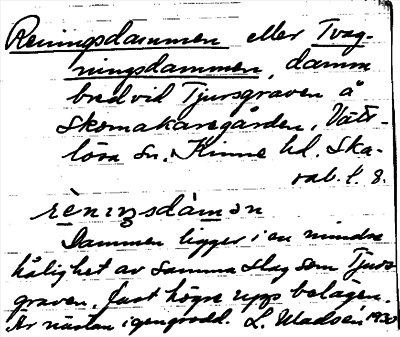 Reningsdammen eller Tvag-
ningsdammen, damm
bredvid Tjursgraven å
Skomakaregården, Väts-
löva Sn. Kinne hd. Ska-
rab. l. 8.
rèninsdàmən
Dammen ligger i en mindre
hålighet av samma slag som Tjurs-
graven, fast högre upp belägen.
Är nästan igengrodd. L. Madsén 1930